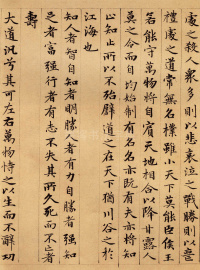 處之殺人衆多則以悲哀泣之戰勝則以喪
禮處之道常無名樸雖小天下莫能臣侯王
若能守萬物將自賓天地相合以降甘露人
莫之令而自均始制有名名亦既有夫亦將知
止知止所以不殆譬道之在天下猶川谷之於
江海也
知人者智自知者明勝人者有力自勝者強知
足者富強行者有志不失其所久死而不亡者
壽
大道汎兮其可左右萬物恃之以生而不辭功